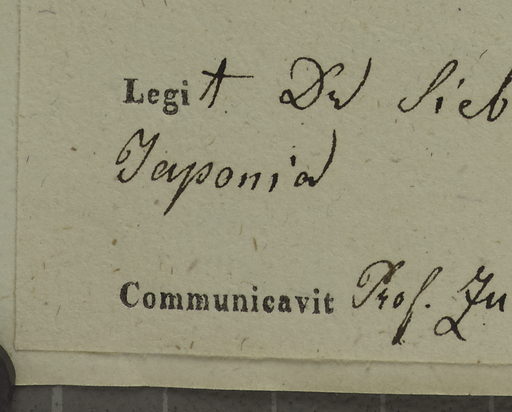 Legit Dr Sieb
Japonia
Communicavit Prof. Zu